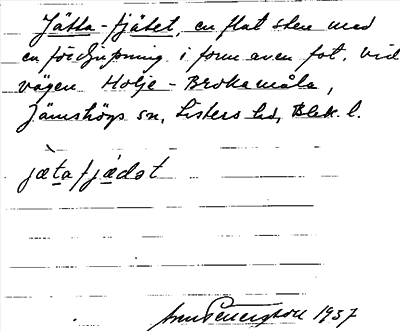 Jätta-fjätet, en flat sten med
en fördjupning i form av en fot, vid
vägen Holje - Brokamåla,
Jämshögs sn, Listers hd, Blek. l.
jætafjædot
1937